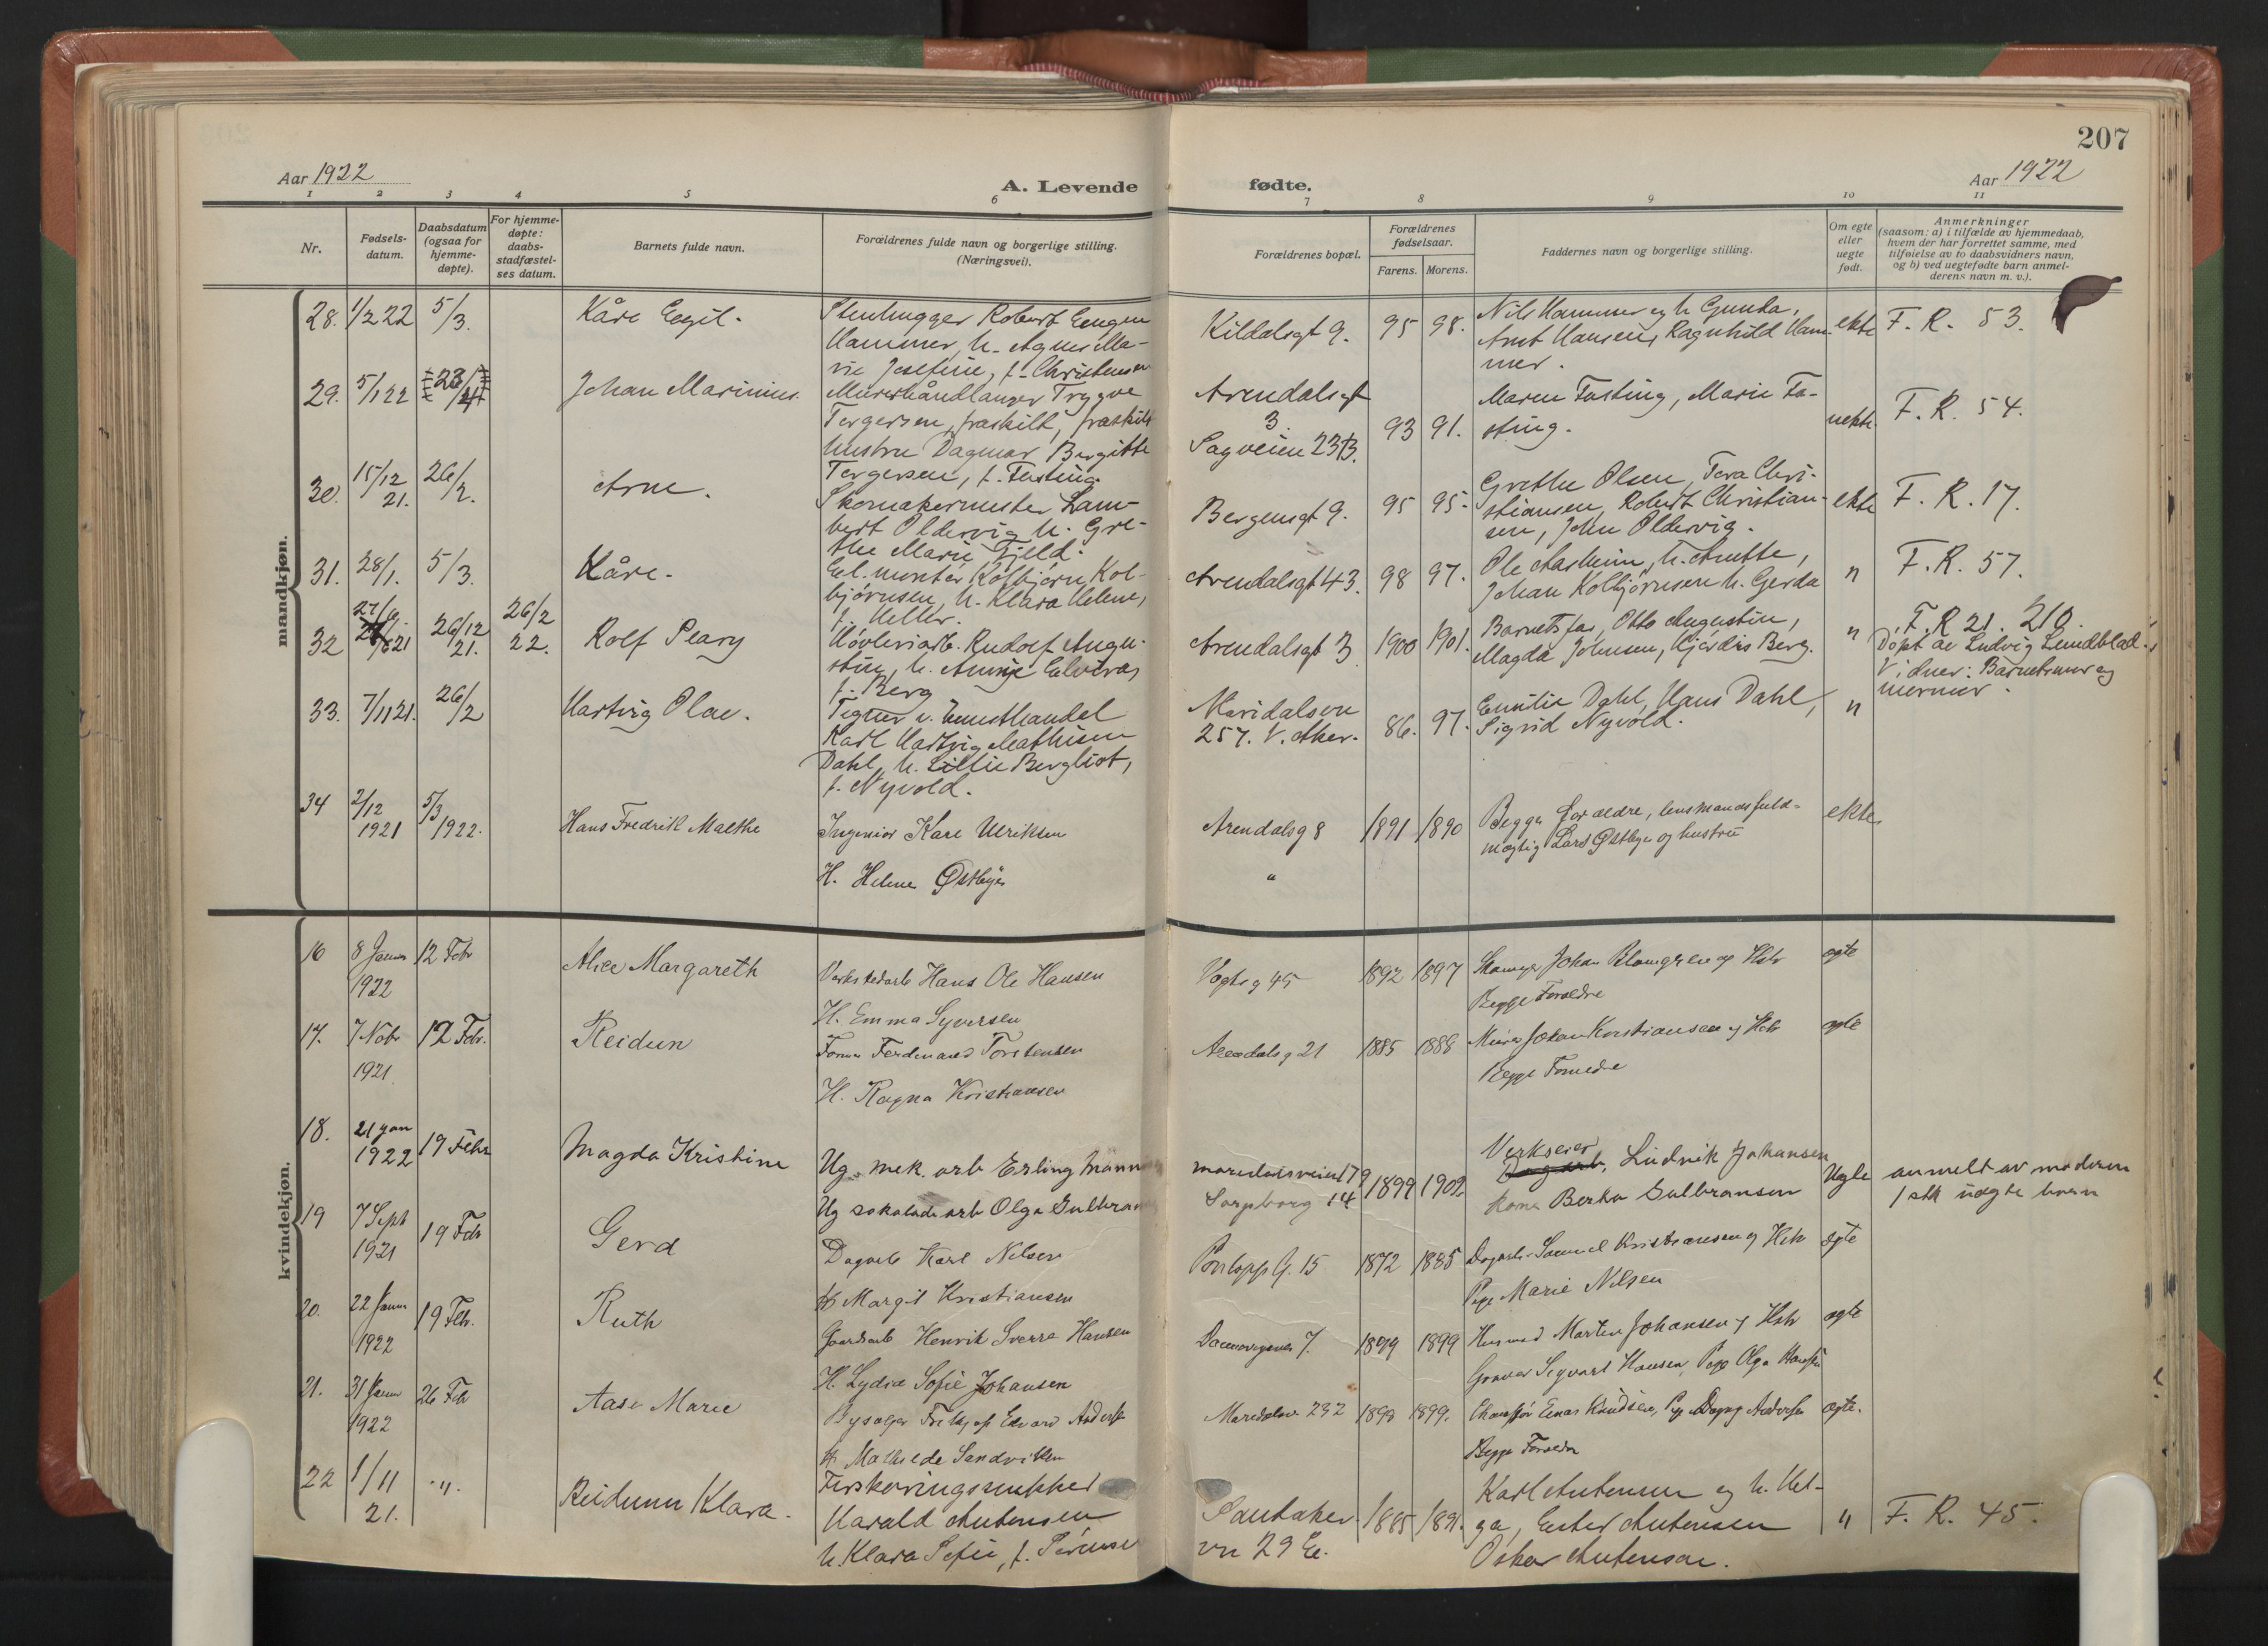 207
Aar 1922
A. Levende
fødte.
Aar 1922
1 2 3 4 5 6 7 8 9 10 11
Nr.
Fødsels-
datum.
Daabsdatum
(ogsaa for
hjemme-
døpte).
For hjemme-
døpte:
daabs-
stadfæstel-
ses datum.
Barnets fulde navn.
Forældrenes fulde navn og borgerlige stilling.
(Næringsvei).
Forældrenes bopæl.
Forældrenes
fødselsaar.
Farens. Morens.
Faddernes navn og borgerlige stilling.
Om egte
eller
uegte
født.
Anmerkninger
(saasom: a) i tilfælde av hjemmedaab,
hvem der har forrettet samme, med
tilføielse av to daabsvidners navn,
og b) ved uegtefødte barn anmel-
derens navn m. v.).
mandkjøn.
28. 1/2 22 5/3. Kåre Eegil. Stenhugger Robert Eugen
Hammer, h. Agnes Ma-
rie Josefine, f. Christensen
Kildalsgt 9. 95 98. Nils Hammer og h. Gunda,
Arnt Hansen, Ragnhild Ham-
mer.
ekte F. R. 53.
29. 5/1 22 23/4 Johan Marinius. Murerhåndlanger Trygve
Tergersen, fraskilt, fraskilt
hustru Dagmar Bergitte
Tergersen, f. Fasting
Arendalsgt
3.
Sagveien 23 B.
93 91. Maren Fasting, Marie Fa-
sting.
uekte F. R. 54.
30. 15/12 21. 26/2. Arne. Skomakermester Lam-
bert Oldervig h. Gre-
the Marie Fjeld.
Bergensgt 9. 95 95. Grethe Olsen, Tora Chri-
stiansen, Robert Christian-
sen, John Oldervig.
ekte F. R. 17.
31. 28/1. 5/3. Kåre. El. montør Kolbjørn Kol-
bjørnsen, h. Klara Helene,
f. Heller.
Arendalsgt 43. 98 97. Ole Aasheim, h. Anette,
Johan Kolbjørnsen h. Gerda
" F. R. 57.
32 26/12 21. 26/2 22. Rolf Peary Høvleriarb. Rudolf Augu-
stin, h. Annie Elvira,
f. Berg
Arendalsgt 3 1900 1901. Barnets far, Otto Augustin,
Magda Johnsen, Hjørdis Berg.
" F. R 21. 210.
Døpt av Ludvig Lundblad.
Vidner: Barnets mor og
mormor.
33. 7/11 21. 26/2 Hartvig Olav. Tegner v. kunsthandel
Karl Hartvig Mathisen
Dahl, h. Lillie Bergliot,
f. Nyvold.
Maridalsvn
257. V. Aker. 86. 97. Emilie Dahl, Hans Dahl,
Sigrid Nyvold. "
34 2/12 1921 5/3 1922. Hans Fredrik Malthe Ingeniør Kare Ulriksen
H. Helene Østbye
Arendalsg 8 1891 1890 Begge forældre, lensmandsfuld-
mægtig Lars Østbye og hustru
"
ekte
kvindekjøn.
16 8 Januar 1922 12 Febr Alice Margareth Verkstedarb Hans Ole Hansen
H. Emma Syversen
Vogtsg 45 1892 1897 Johan Blomgren og Hstr
Begge Forældre
egte
17. 7 Nobr 1921 12 Febr. Reidun Former Ferdinand Torstensen
H. Ragna Kristiansen
Arendalsg 21 1885 1888 Murer Johan Kristiansen og Hstr
Begge Forældre
egte
18. 21 jan 1922 19 Febr Magda Kristine Ug. mek. arb Erling
Ug sokoladearb Olga Gulbran
maridalsveien 179
Sarpborg 14 1899 1902. Verkseier
Ludvik Johansen
kone Berta Gulbransen
Uegte anmelt av moderen
1 stk uægte barn
19 7 Sept 1921 19 Febr Gerd Dagarb Karl Nilsen
H Margit Kristiansen
G. 15 1872 1885 Dagarb. Samuel Kristiansen og Hstr
Pige Marie Nilsen
egte
20. 22 Januar 1922 19 Febr. Ruth Gaardsarb Henrik Sverre Hansen
H. Lydia Sofie Johansen
7. 1899 1899 Martin Johansen og Hstr
Graver Sigvart Hansen, Pige Olga Hansen
egte
21. 31 Januar 1922 26 Febr Aase Marie Frithjof Edvard Anders
H Mathilde Sandviken
Maridalsv 232 1898 1899. Chauffør Einar Knudsen, Pige Dagny Andersen
Begge Forældre
egte.
22 1/11 21. " Reidunn Klara.
Harald Antonsen
h. Klara Sofie, f.
Sandaker
vn 29 E. 1885 1891. Karl Antonsen og h. Hel-
ga, Ester Antonsen
Oskar Antonsen.
" F. R. 45.